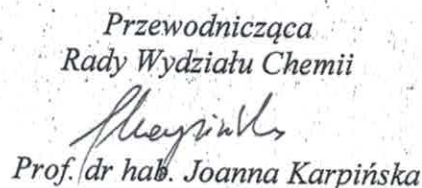 Przewodnicząca
Rady Wydziału Chemii
Prof. dr hab. Joanna Karpińska